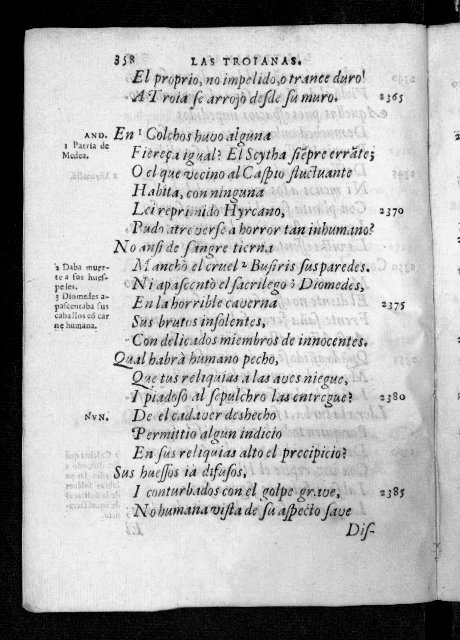 358 LAS TROIANAS.
El proprio, no impelido, o trance duro!
A Troia se arrojò desde su muro. 2365
AND. En ¹ Colchos huvo alguna
1 Patria de
Medea.
Fiereça igual? El Scytha siēpre errāte;
O el que vecino al Caspio fluctuante
Habita, con ninguna
Lei reprimido Hyrcano, 2370
Pudo atreverse à horror tan inhumano?
No ansi de sangre tierna
2 Daba muer-
te a sus hues-
pedes.
Manchò el cruel ² Busiris sus paredes.
Ni apascentò el sacrilego ³ Diomedes,
3 Diomedes a-
pascentaba sus
caballos cō car
ne humana.
En la horrible caverna 2375
Sus brutos insolentes,
Con delicados miembros de innocentes.
Qual habrà humano pecho,
Que tus reliquias a las aves niegue,
I piadoso al sepulchro las entregue? 2380
NVN. De el cadaver deshecho
Permittio algun indicio
En sus reliquias alto el precipicio?
Sus huessos ià difusos,
I conturbados con el golpe grave, 2385
No humana vista de su aspecto save
Dis-